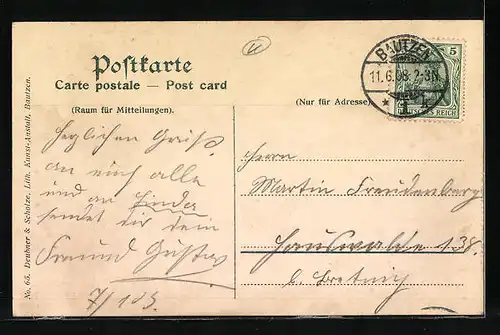 Postkarte
Carte postale — Post card
(Raum für Mitteilungen).
(Nur für Adresse)
BAUTZEN
11.6.08 2-3N
5
DEUTSCHES REICH
Herzlichen Gruß
an euch alle
und an Linda
sendet dir dein
Freund Gustav
Herrn
Martin Freudenberg
Hauswalde 138.
b. Bretnig
No. 65. Deubner & Scholze, Lith. Kunst-Anstalt, Bautzen.